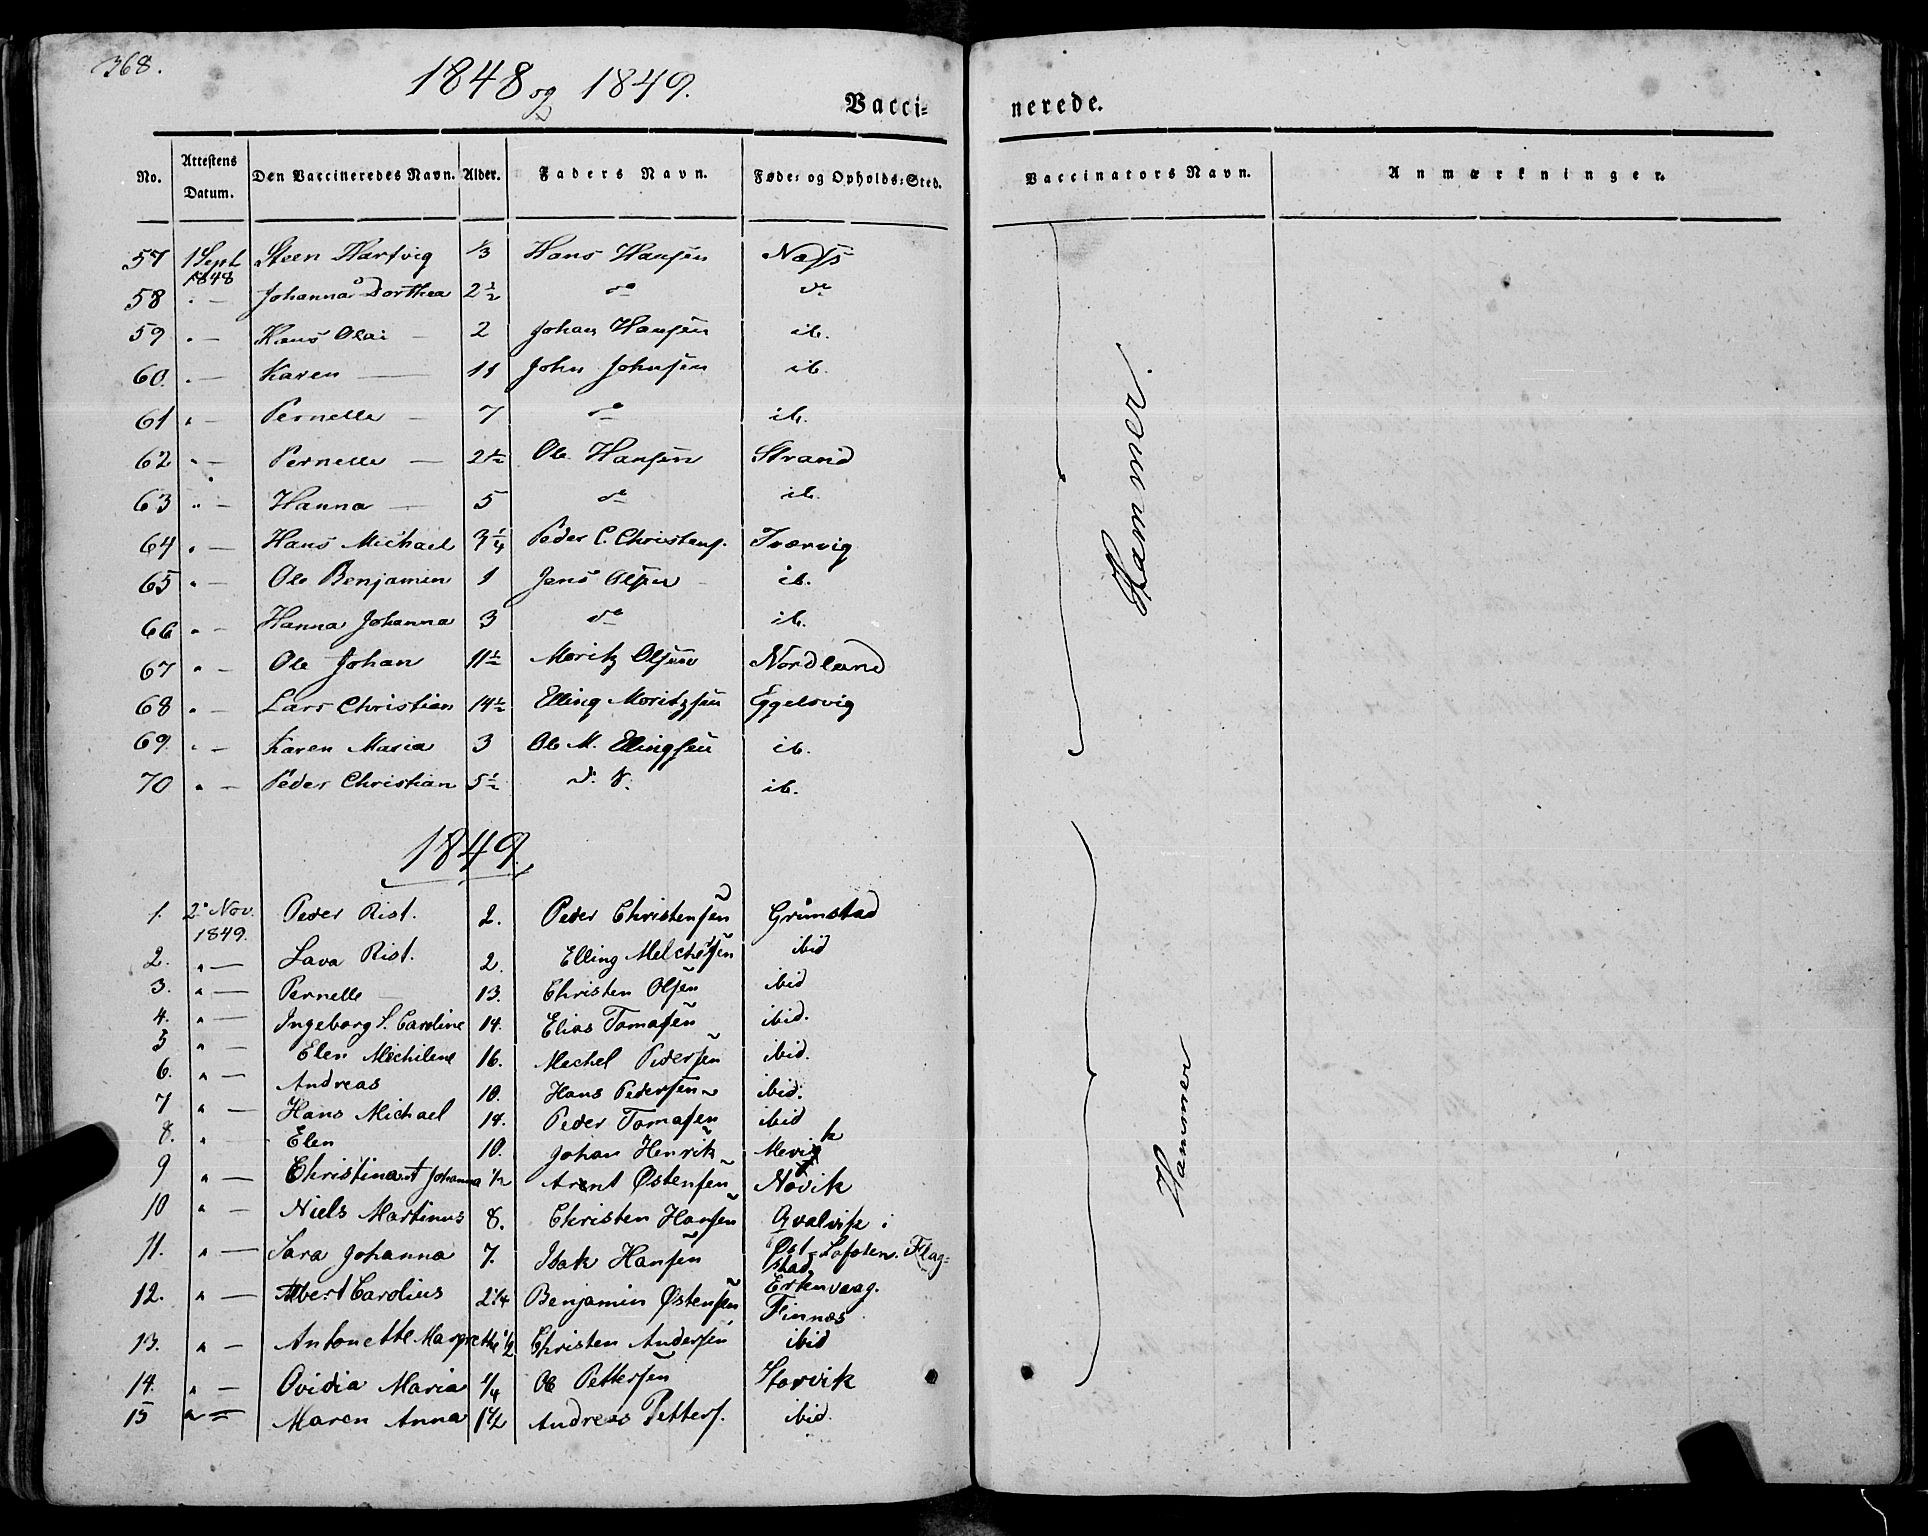 368.
1848 og 1849.
Vacci-
nerede.
No. Attestens Datum. Den Vaccineredes Navn. Alder. Faders Navn. Føde- og Opholds-Sted. Vaccinators Navn. Anmærkninger.
57 1 Sept 1848 Steen Hartvig 1/3 Hans Hansen Næss
58 " — Johanna Dorthea 2 1/2 do do
59 " — Hans Olai — 2 Johan Hansen ib.
60. " — Karen — 11 John Johnsen ib.
61 " — Pernelle — 7 do ib.
62 " — Pernelle — 2 1/2 Ole Hansen Strand
63 " — Hanna — 5 do ib.
64 " — Hans Michael 3 1/4 Peder C. Christens. Tværvig
65 " — Ole Benjamin 1 Jens Olsen ib.
66 " — Hanna Johanna 3 do ib.
67 " — Ole Johan 11 1/2 Moritz Olsen Nordland
68 " — Lars Christian 14 1/2 Elling Moritzsen Eggelsvig
69. " — Karen Maria 3 Ole M. Ellingsen ib.
70 " — Peder Christian 5 1/2 d. o. ib.
Hammer.
1849.
1. 2. Nov. 1849. Peder Rist. 2. Peder Christensen Grimstad
2. " — Lava Rist. 2. Elling Melchersen ibid
3. " — Pernelle — 13. Christen Olsen ibid
4. " — Ingeborg S. Caroline 14. Elias Tomasen ibid.
5 " — Elen Michilene 16. Mechel Pedersen ibid.
6. " — Andreas 10. Hans Pedersen ibid.
7 " — Hans Michael 14. Peder Tomasen ibid
8. " — Elen 10. Johan Henrik Mevik
9 " — Christina Johanna 1/2 Arent Østensen Novik
10 " — Niels Martinus 8. Christen Hansen Qvalvik i
11. " — Sara Johanna 7. Isak Hansen Øst-Lofoten. Flag-
stad
12. " — Albert Carolius 2 1/4 Benjamin Østensen Erkenvaag.
Finnæs
13. " — Antonette Margrethe 1/2 Christen Andersen ibid
14. " — Ovidia Maria 1/4 Ole Pettersen Storvik
15 " — Maren Anna 1 1/2 Andreas Petters. ibid.
Hammer